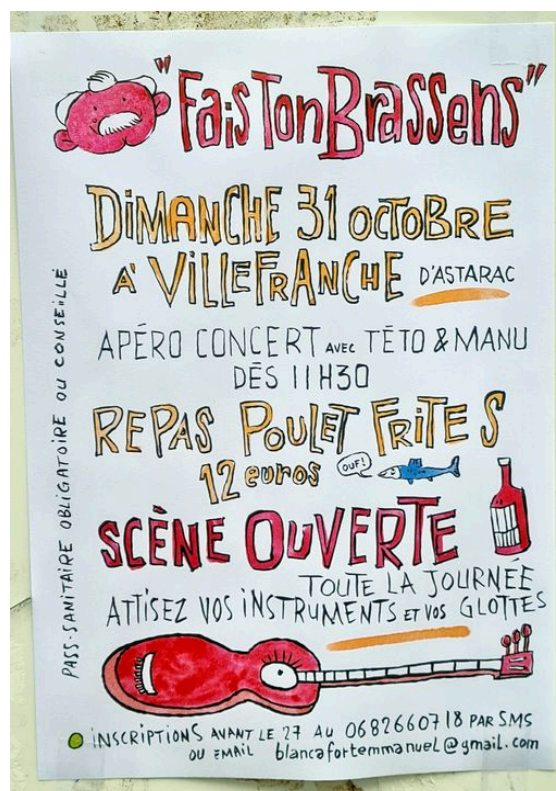 "Fais Ton Brassens"
DIMANCHE 31 OCTOBRE
A' VILLEFRANCHE D'ASTARAC
APÉRO CONCERT AVEC TÉTO & MANU
DÈS 11H30
REPAS POULET FRITES
12 euros
OUF!
SCÈNE OUVERTE
TOUTE LA JOURNÉE
ATTISEZ VOS INSTRUMENTS ET VOS GLOTTES
INSCRIPTIONS AVANT LE 27 AU 0682660718 PAR SMS
OU EMAIL blancafortemmanuel@gmail.com
PASS-SANITAIRE OBLIGATOIRE OU CONSEILLÉ